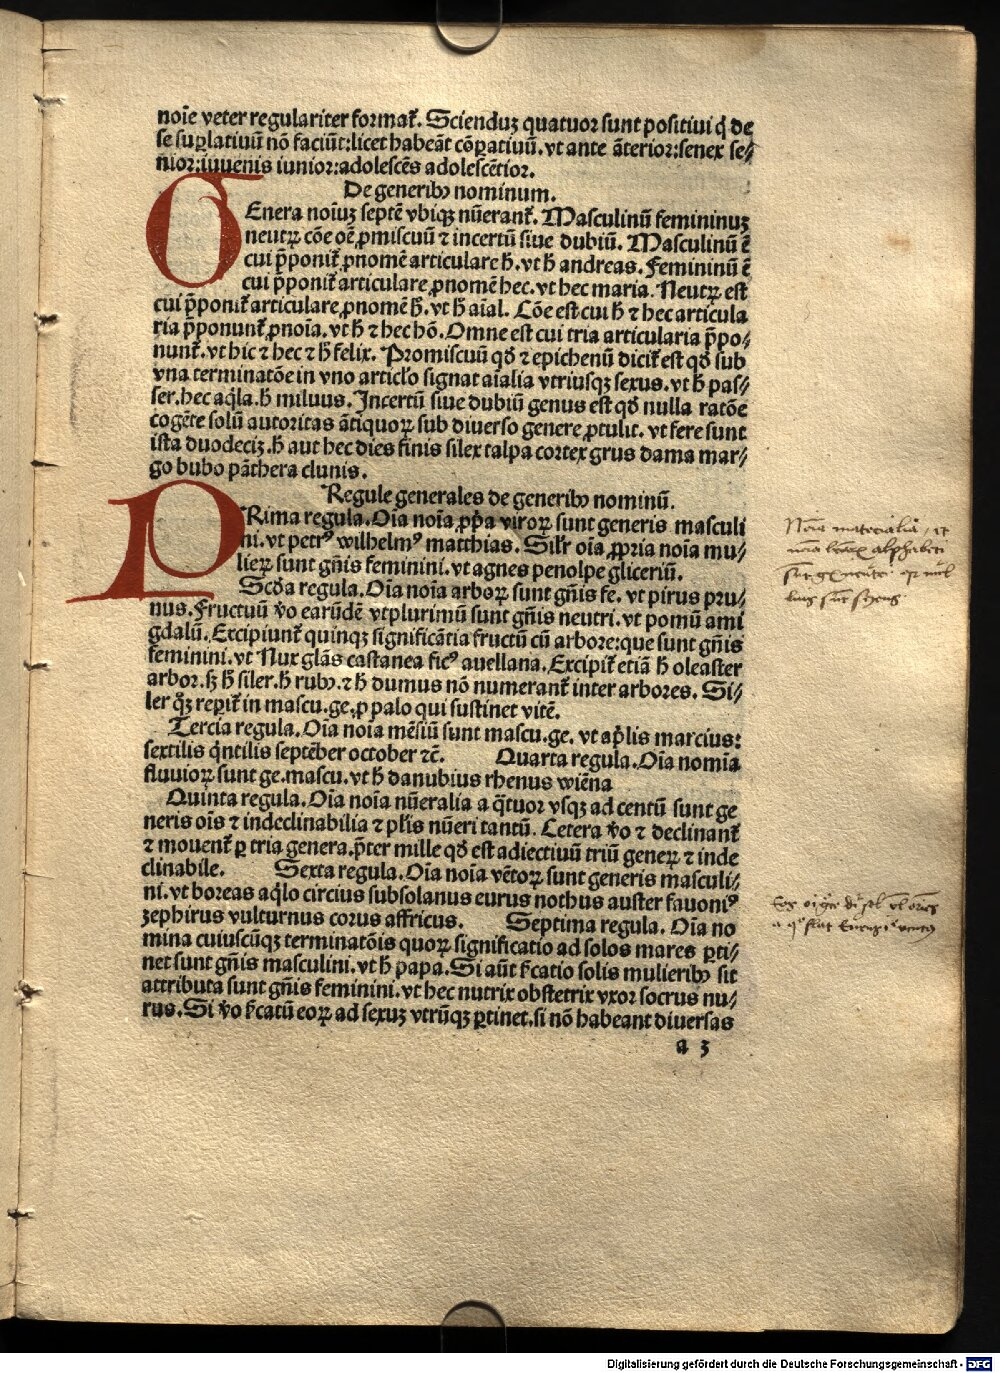 noīe veter regulariter formaꝉ. Scienduꝫ quatuor sunt positivi ꝙ de
se suꝑlativū nō faciūt: licet habeāt cōꝑativū. vt ante āterior: senex se⸗
nior: iuvenis iunior: adolescēs adolescētior.
De generibꝫ nominum.
GEnera noīuꝫ septē vbiqꝫ nūeranꝉ. Masculinū femininuꝫ
neutrꝝ cōe oē ꝓmiscuū ⁊ incertū siue dubiū. Masculinū ē
cui p̄poniꝉ ꝓnomē articulare ħ. vt ħ andreas. Femininū ē
cui p̄poniꝉ articulare ꝓnomē hec. vt hec maria. Neutꝝ est
cui p̄poniꝉ articulare ꝓnomē ħ. vt ħ aīal. Cōe est cui ħ ⁊ hec articula
ria p̄ponunꝉ ꝓnoīa. vt ħ ⁊ hec hō. Omne est cui tria articularia p̄po⸗
nunꝉ. vt hic ⁊ hec ⁊ ħ felix. Promiscuū qđ ⁊ epichenū diciꝉ est qđ sub
vna terminatōe in vno articꝉo signat aīalia vtriusqꝫ sexus. vt ħ pas⸗
ser. hec aq̄la. ħ miluus. Incertū siue dubiū genus est qđ nulla ratōe
cogēte solū autoritas ātiquoꝝ sub diuerso genere ꝓtulit. vt fere sunt
ista duodeciꝫ. ħ aut hec dies finis silex talpa cortex grus dama mar⸗
go bubo pāthera clunis.
Regule generales de generibꝫ nominū.
PRima regula. Oīa noīa ꝓpͥa viroꝝ sunt generis masculi
ni. vt petrꝰ wilhelmꝰ matthias. Silꝉr oīa ꝓpria noīa mu⸗
lieꝝ sunt gn̄is feminini. vt agnes penolpe gliceriū.
Scđa regula. Oīa noīa arboꝝ sunt gn̄is fe. vt pirus pru⸗
nus. Fructuū ṽo earūdē vt plurimū sunt gn̄is neutri. vt pomū ami
gdalū. Excipiunꝉ quinqꝫ significātia fructū cū arbore: que sunt gn̄is
feminini. vt Nux glās castanea ficꝰ auellana. Excipiꝉ etiā ħ oleaster
arbor. sꝫ ħ siler. ħ rubꝰ. ⁊ ħ dumus nō numeranꝉ inter arbores. Si⸗
ler qͣꝫ reꝑiꝉ in mascu. ge. ꝓ palo qui sustinet vitē.
Tercia regula. Oīa noīa mēsiū sunt mascu. ge. vt aꝓlis marcius:
sextilis q̄ntilis septēber october ⁊c̄. Quarta regula. Oīa nomīa
fluuioꝝ sunt ge. mascu. vt ħ danubius rhenus wiēna
Quinta regula. Oīa noīa nūeralia a q̄tuor vsqꝫ ad centū sunt ge
neris oīs ⁊ indeclinabilia ⁊ pꝉis nūeri tantū. Cetera ṽo ⁊ declinanꝉ
⁊ movenꝉ ꝑ tria genera. p̄ter mille qđ est adiectivū triū geneꝝ ⁊ inde
clinabile. Sexta regula. Oīa noīa vētoꝝ sunt generis masculi⸗
ni. vt boreas aq̄lo circius subsolanus eurus nothus auster favoniꝰ
zephirus vulturnus corus affricus. Septima regula. Oīa no
mina cuiuscūqꝫ terminatōis quoꝝ significatio ad solos mares ꝑti⸗
net sunt gn̄is masculini. vt ħ papa. Si aūt ẜcatio solis mulieribꝫ sit
attributa sunt gn̄is feminini. vt hec nutrix obstetrix vxor socrus nu⸗
rus. Si ṽo ẜcatū eoꝝ ad sexuꝫ vtrūqꝫ ꝑtinet. si nō habeant diuersas
a 3
Noīa materialia et
alphabeti
Digitalisierung gefördert durch die Deutsche Forschungsgemeinschaft - DFG